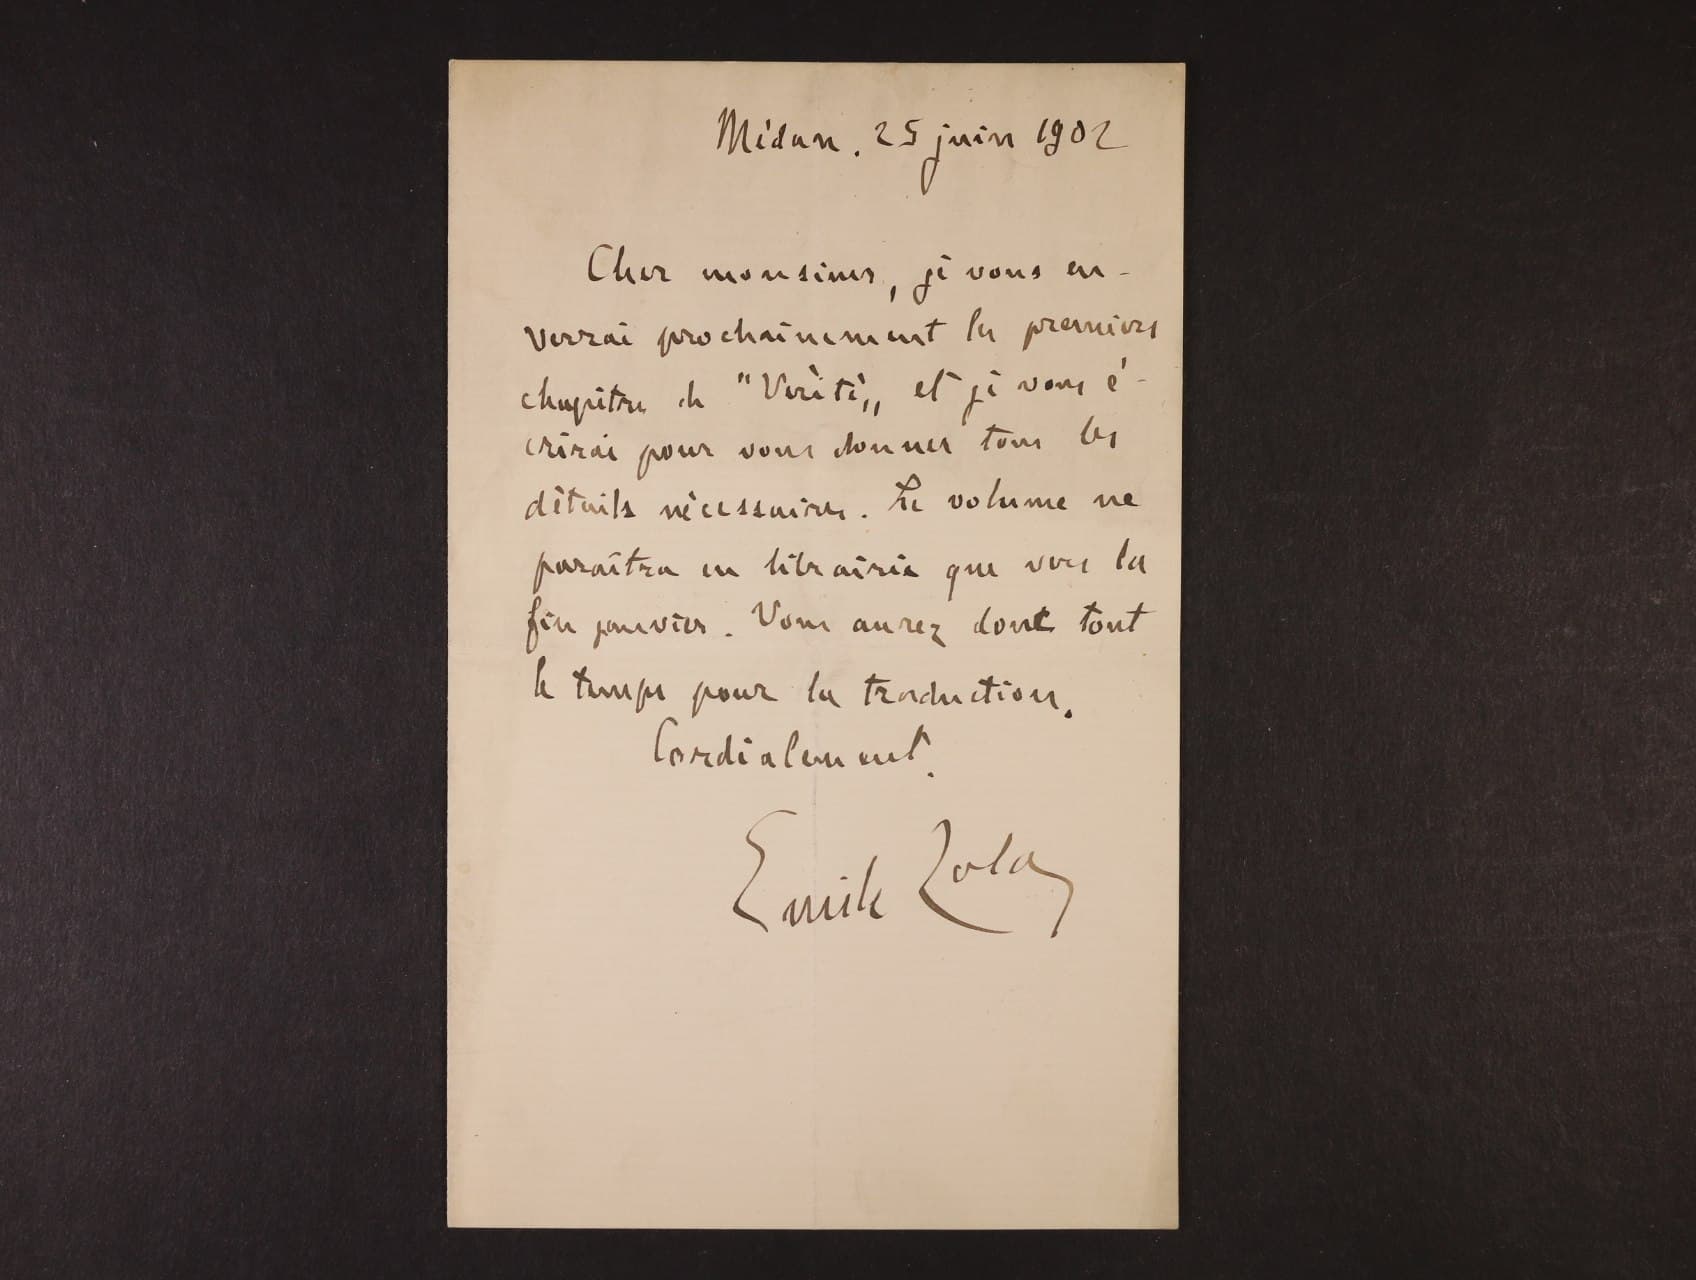 Médan. 25 juin 1902
Cher monsieur, je vous en-
verrai prochainement les premiers
chapitres de "Vérité„ et je vous é-
crirai pour vous donner tous les
détails nécessaires. Le volume ne
paraîtra en librairie que vers la
fin janvier. Vous aurez donc tout
le temps pour la traduction.
Cordialement.
Emile Zola